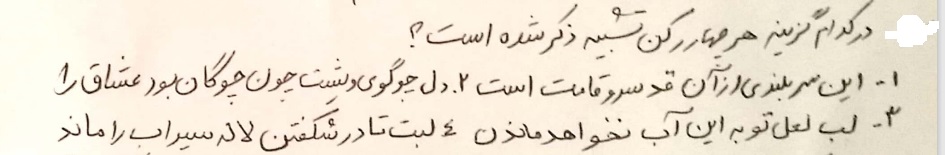 در کدام گزینه هر چهار رکن تشبیه ذکر شده است؟
۱- این سربلندی از آن قد سرو قامت است ۲. دل چو گوی و پشت چون چوگان بود عشاق را
۳- لب لعل تو به این آب نخواهد ماندن ٤ لبت تا در شگفتن لاله سیراب را ماند